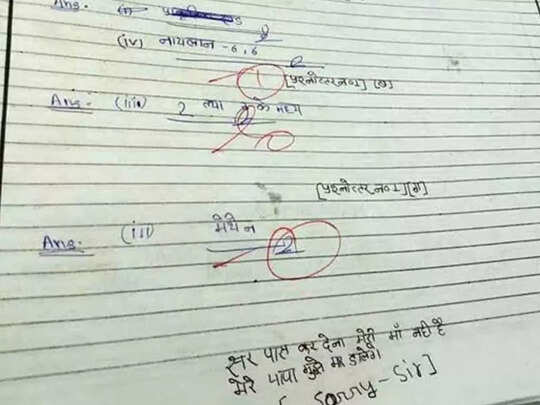 Ans. (i)
(iv) नायलान - 6,6
1 [प्रश्नोत्तर न० 1] (ख)
Ans:- (iii) 2 तथा के मध्य
[प्रश्नोत्तर न० 1] (ग)
Ans. (iii) मेथेन 2
सर पास कर देना मेरी माँ नही है
मेरे पापा मुझे मार डालेगे
[Sorry - Sir]